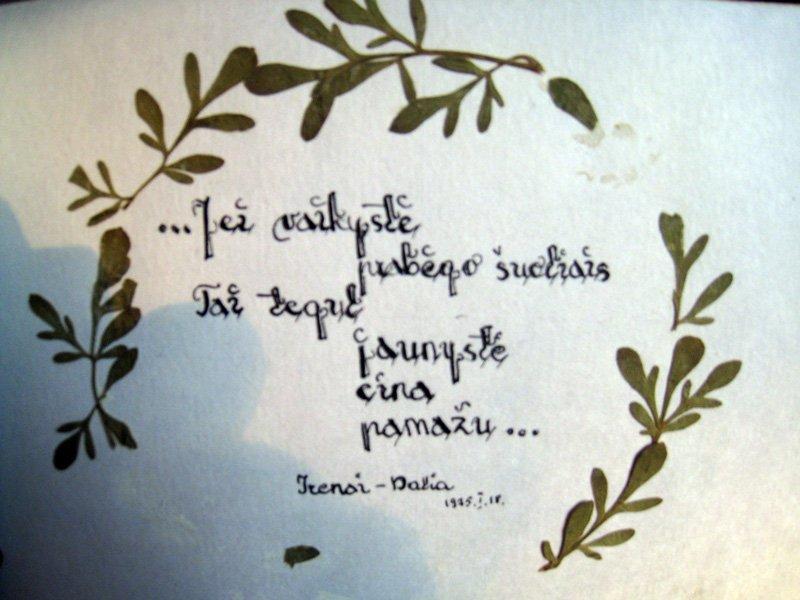 ...Jei vaikystė
prabėgo šuoliais
Tai tegul
jaunystė
eina
pamažu...
Irenai - Dalia